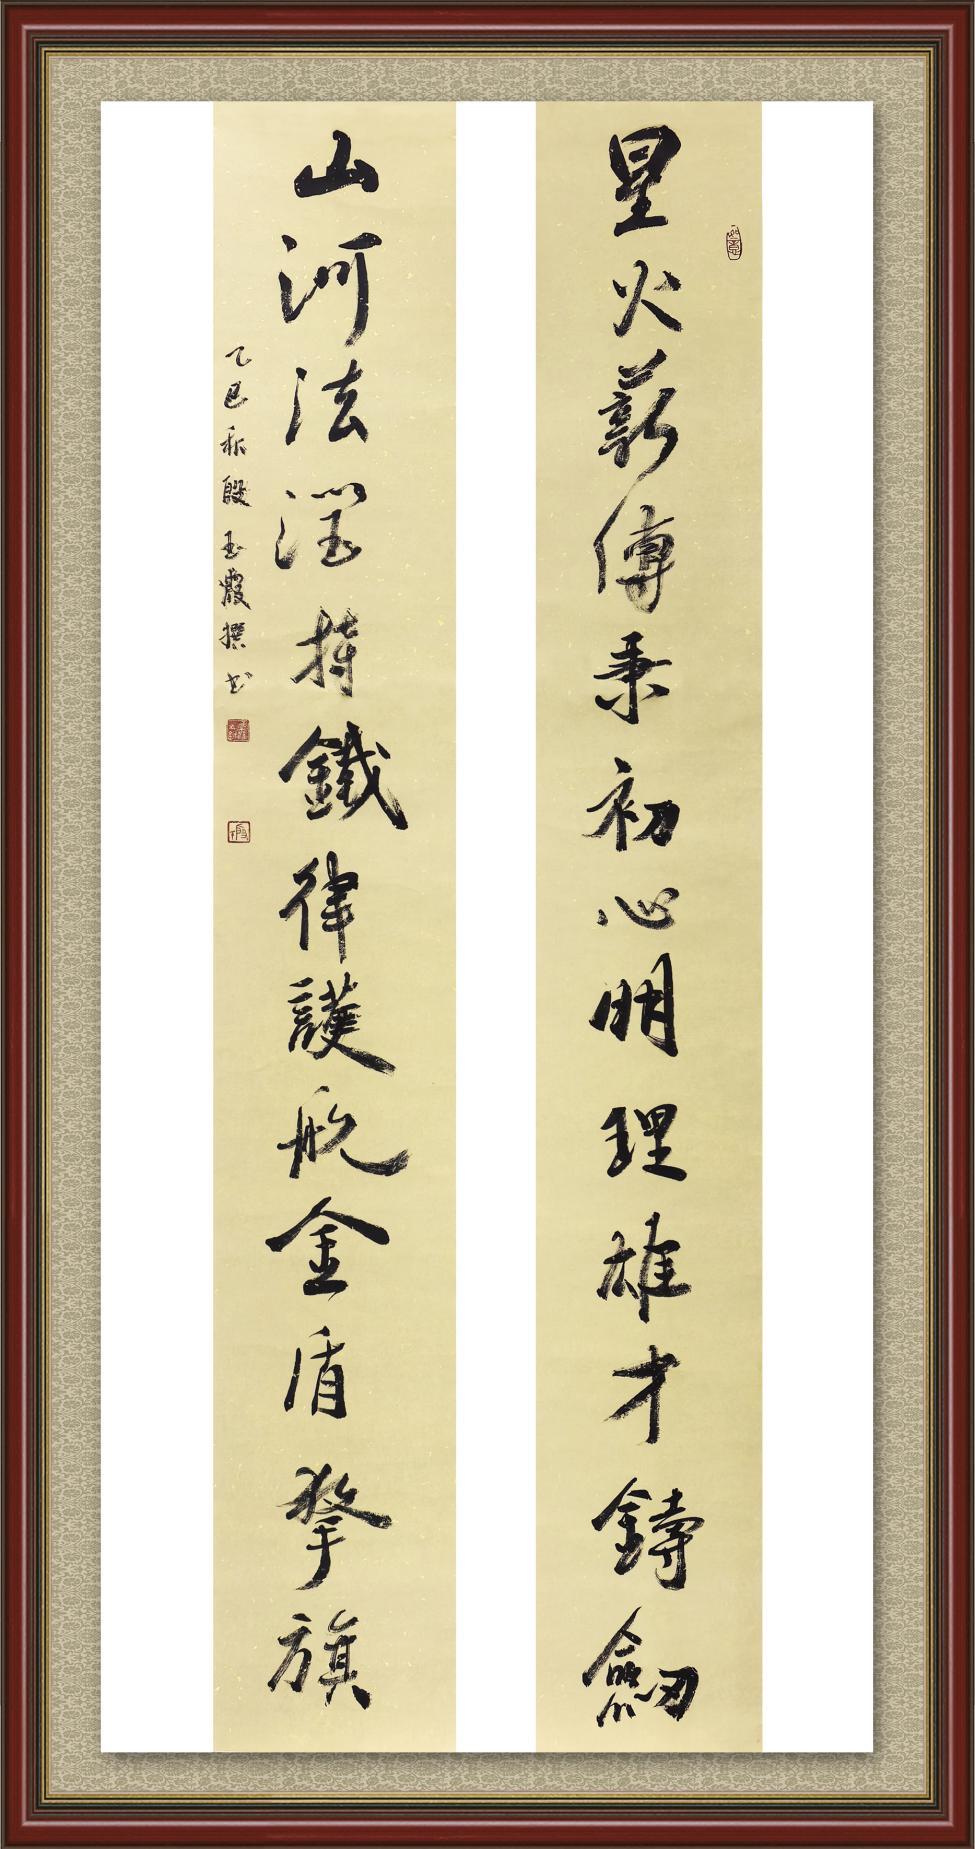 星火薪傳秉初心明理雄才鑄劔
如意
山河法潤持鐵律護航金盾擎旗
乙巳秋殷玉霞撰书